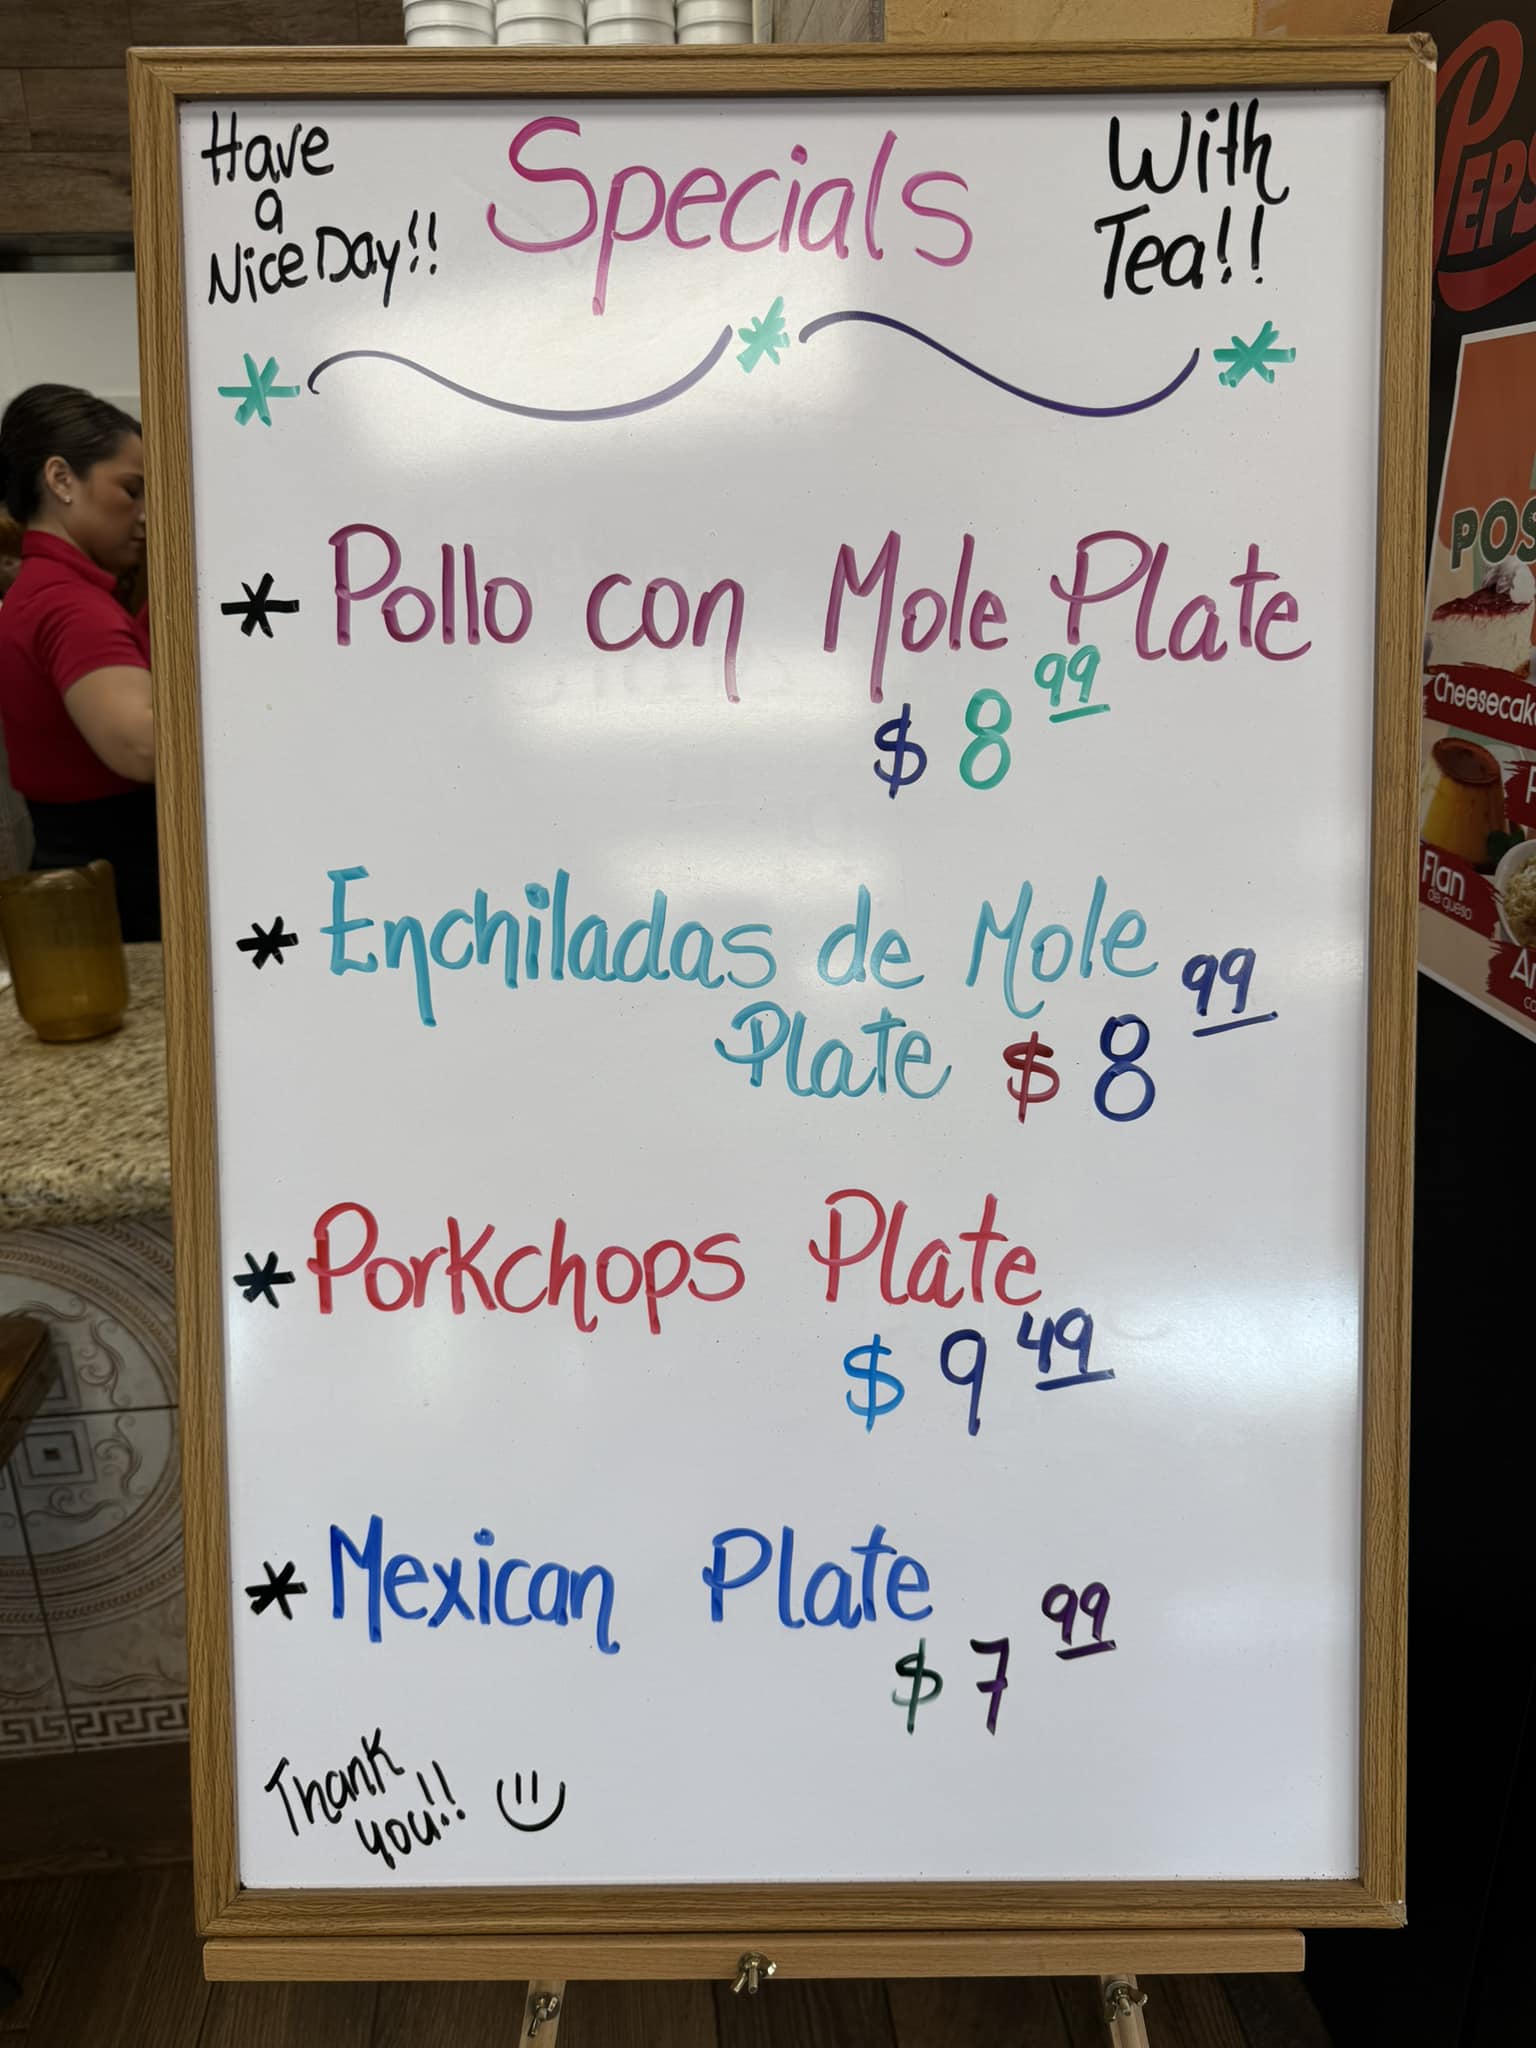 Have
a
Nice Day!!
Specials
With
Tea!!
* Pollo con Mole Plate
$ 8 99
* Enchiladas de Mole
Plate $ 8 99
* Porkchops Plate
$ 9 49
* Mexican Plate
$ 7 99
Thank
you!!
PEPS
POS
Cheesecak
Flan
de queso